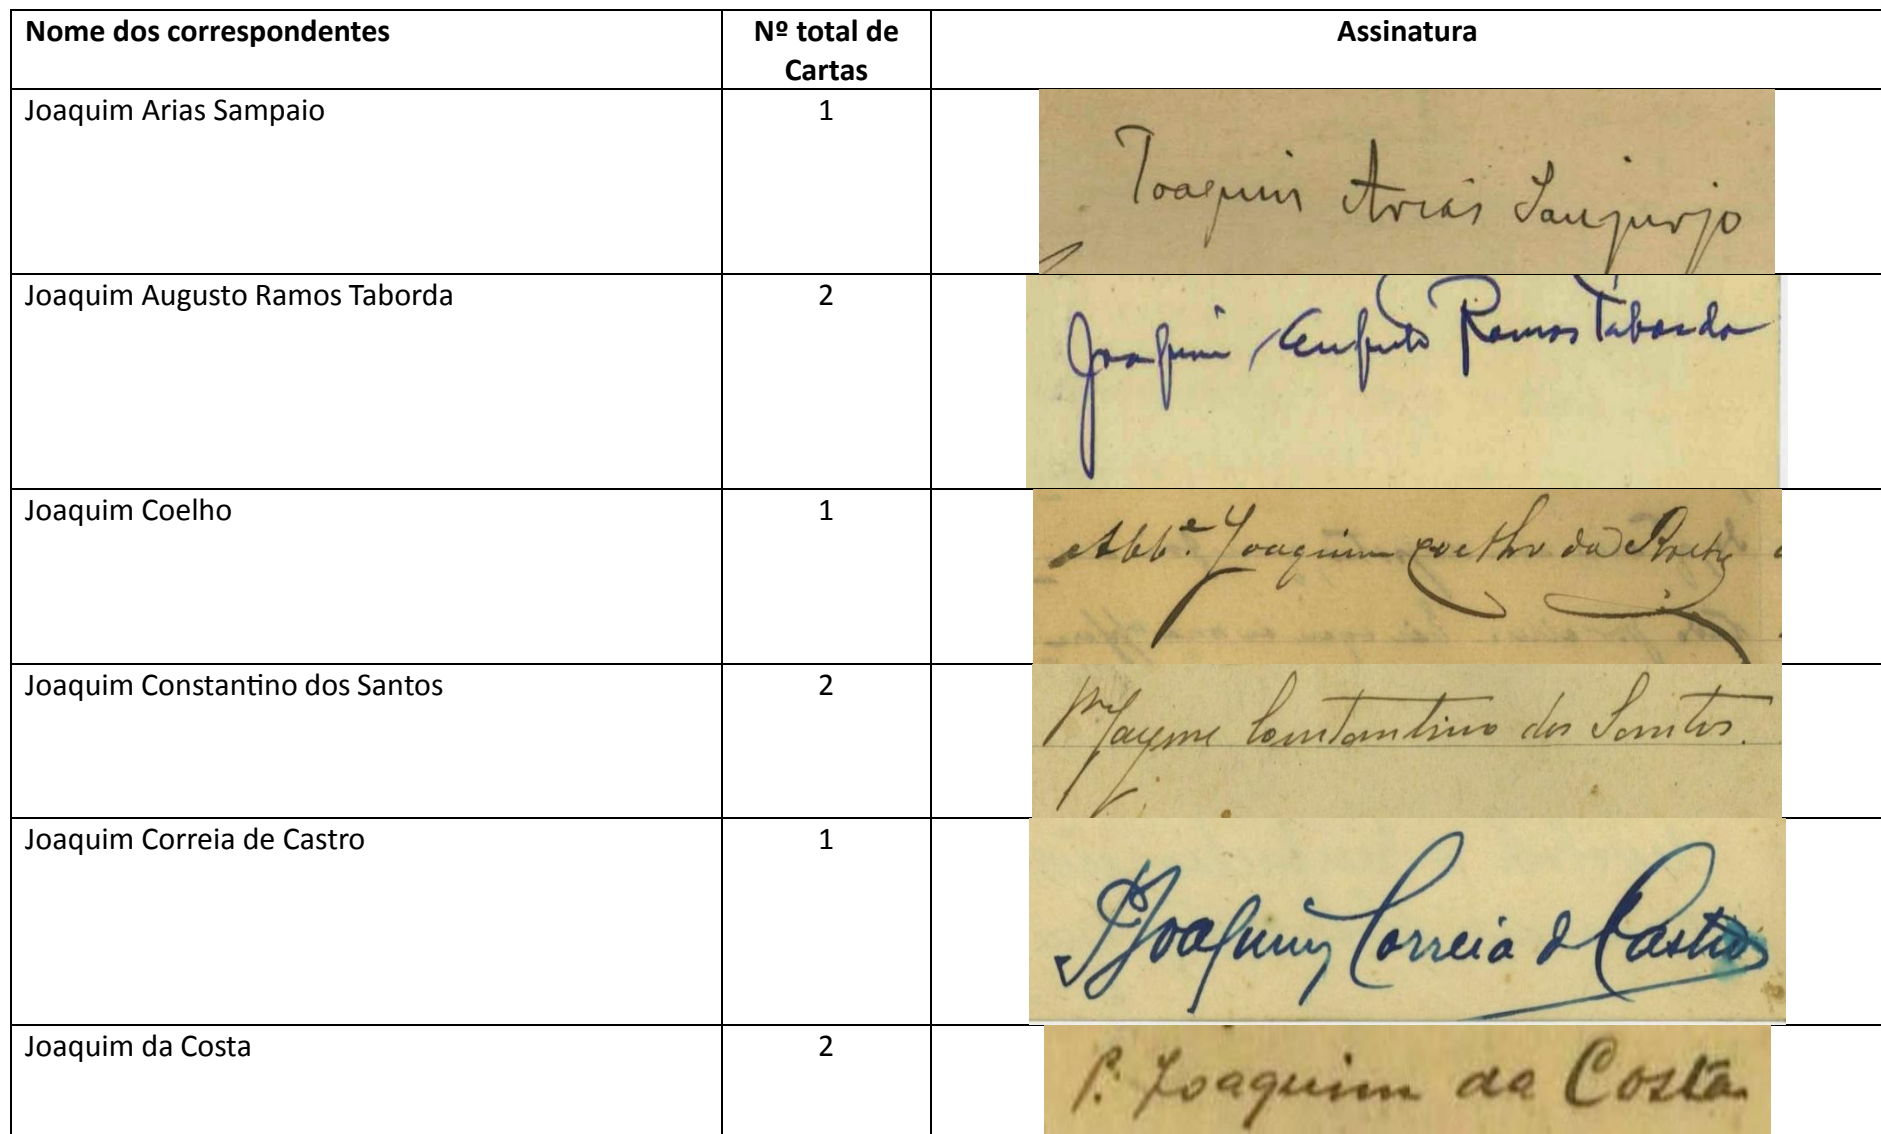 Nome dos correspondentes
Nº total de
Cartas
Assinatura
Joaquim Arias Sampaio
1
Joaquin Arias Sanjurjo
Joaquim Augusto Ramos Taborda
2
Joaquim Augusto Ramos Taborda
Joaquim Coelho
1
Abb.e Joaquim Coelho da Rocha
Joaquim Constantino dos Santos
2
Jayme Constantino dos Santos.
Joaquim Correia de Castro
1
P Joaquim Correia d Castro
Joaquim da Costa
2
P. Joaquim da Costa